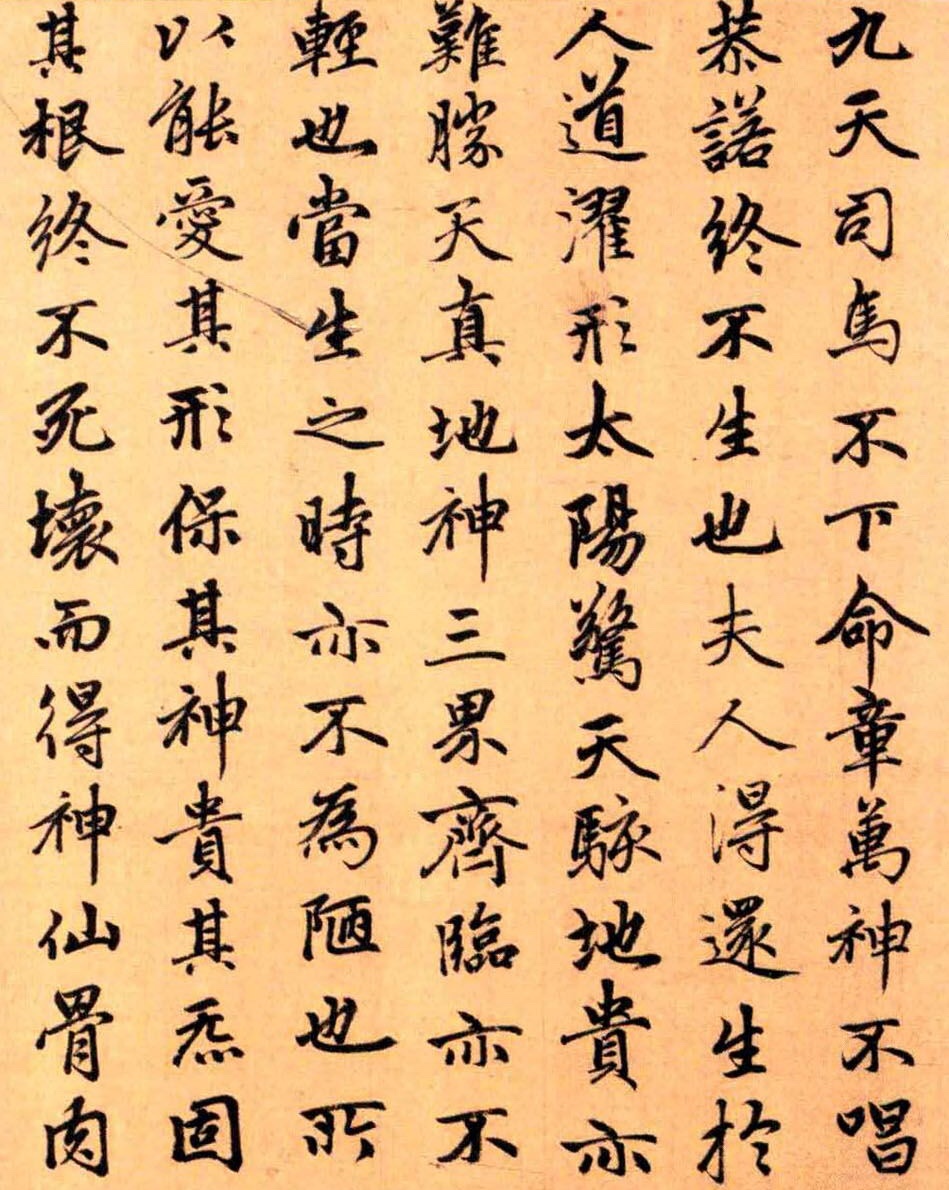 九天司馬不下命章萬神不唱
恭諾終不生也夫人得還生於
人道濯形太陽驚天駭地貴亦
難勝天真地神三界齊臨亦不
輕也當生之時亦不為陋也所
以能愛其形保其神貴其炁固
其根終不死壞而得神仙骨肉